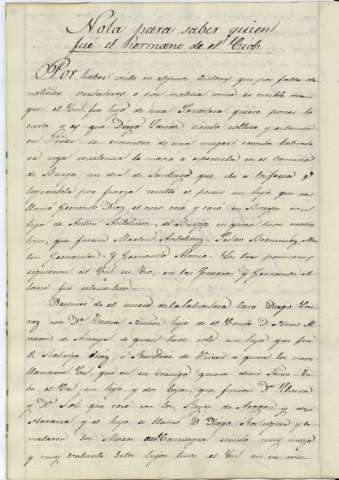 Nota para saber quien
fué el hermano de el Cid.
Por haber visto en algunos Autores que por falta de
noticias verdaderas o por malicia como es creible dicen
que el Cid fue hijo de una Panadera quiero poner lo
cierto y es que Diego Laínez siendo soltero y estando
en Vivar se enamoro de una muger casada
en cuya una
de Burgos, un dia de Santiago que iba a
por fuerza resultó el parirse un hijo que se
llamó Fernando Diaz, el cual casó en Burgos con
hija de Antón Antolínez de Burgos en quien tuvo cuatro
hijos, que fueron Martin Antolinez, Pedro Bermudez,
Fernandez y Fernando Alonso. Los tres primeros
siguieron al Cid su tio, en las Guerras y Fernando A-
lonso fue
Despues de el suceso de la labradora casó Diego Lai-
nez con Dª Teresa Nuñez hija de el Conde D. Nuño Al-
varez de Amaya, de quien tuvo solo un hijo que fué
D. Rodrigo Diaz, o Ruy Diaz de Vivar a quien los moros
llamaron Cid, que en su lengua quiere decir Señor. Tu-
bo el Cid un hijo y dos hijas, que fueron Dª Elvira
y Dª Sol que casó con los Reyes de Aragon y de
Navarra y el hijo se llamó D. Diego Rodriguez y lo
mataron los Moros en Consuegra siendo muy mozo
y muy valiente estos hijos tuvo el Cid en su mu-